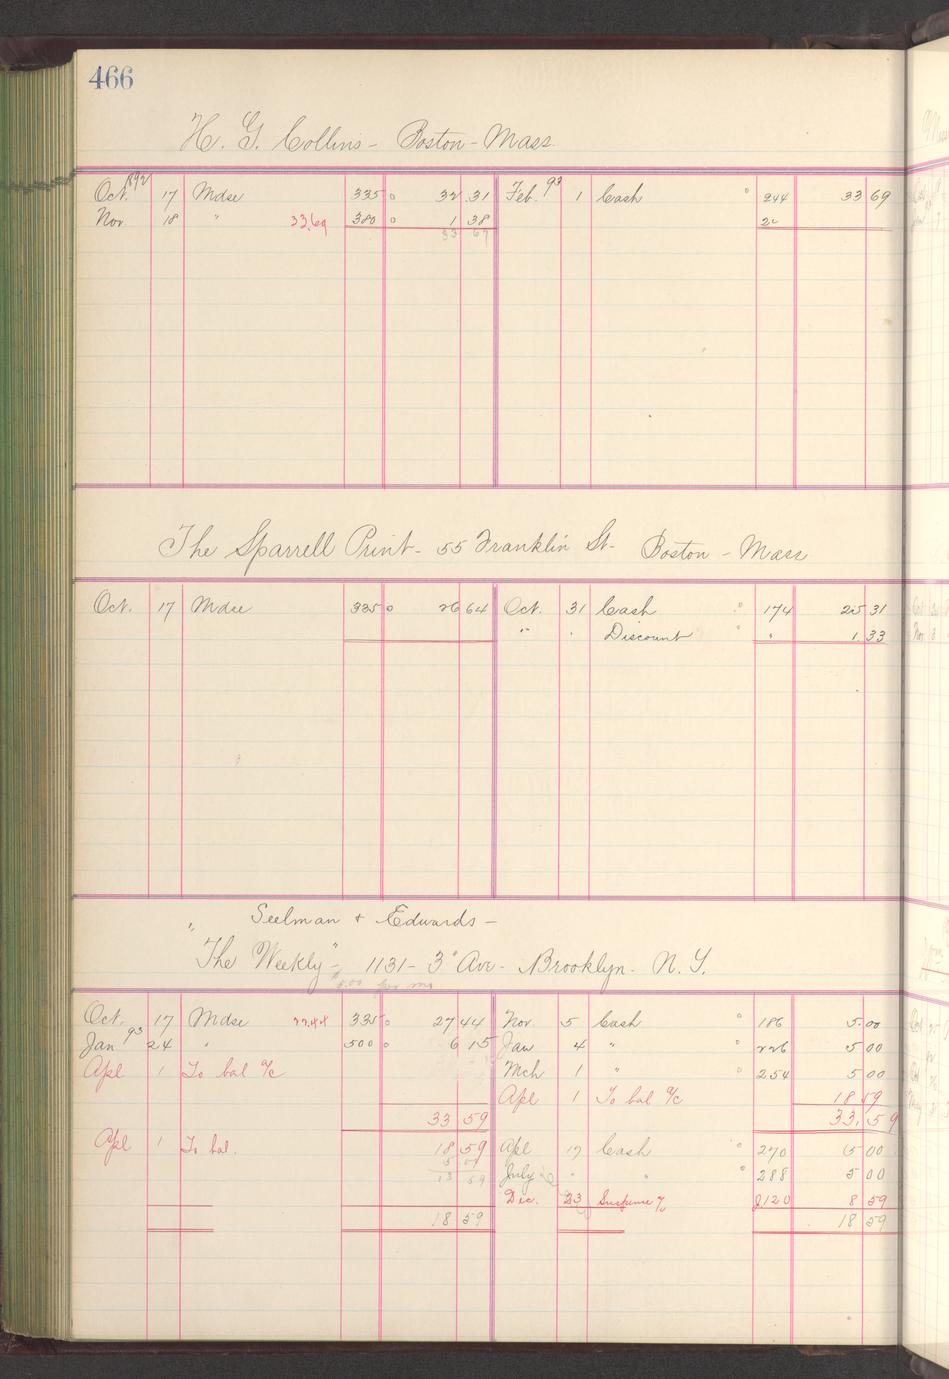 466
H. G. Collins - Boston - Mass
Oct. 1892 17 Mdse 335 o 32 31 Feb. 93 1 Cash 244 33 69
Nov 18 " 33.69 380 o 1 38
33 69
The Sparrell Print - 55 Franklin St - Boston - Mass
Oct. 17 Mdse 335 o 26 64 Oct. 31 Cash 174 25 31
" " Discount " 1 33
Seelman + Edwards -
"The Weekly" - 1131 - 3" Ave - Brooklyn - N. Y.
5.00 per mo
Oct. 17 Mdse 27.44 335 o 27 44 Nov. 5 Cash 186 5.00
Jan 93 24 " 500 o 6 15 Jan 4 " 226 5 00
Apl 1 To bal a/c Mch 1 " 254 5 00
Apl 1 To bal a/c 18 59
33 59 33.59
Apl 1 To bal. 18 59 Apl 17 Cash 270 5 00
13 59 July " " 288 5 00
Dec. 23 Suspense a/c J.120 8 59
18 59 18 59